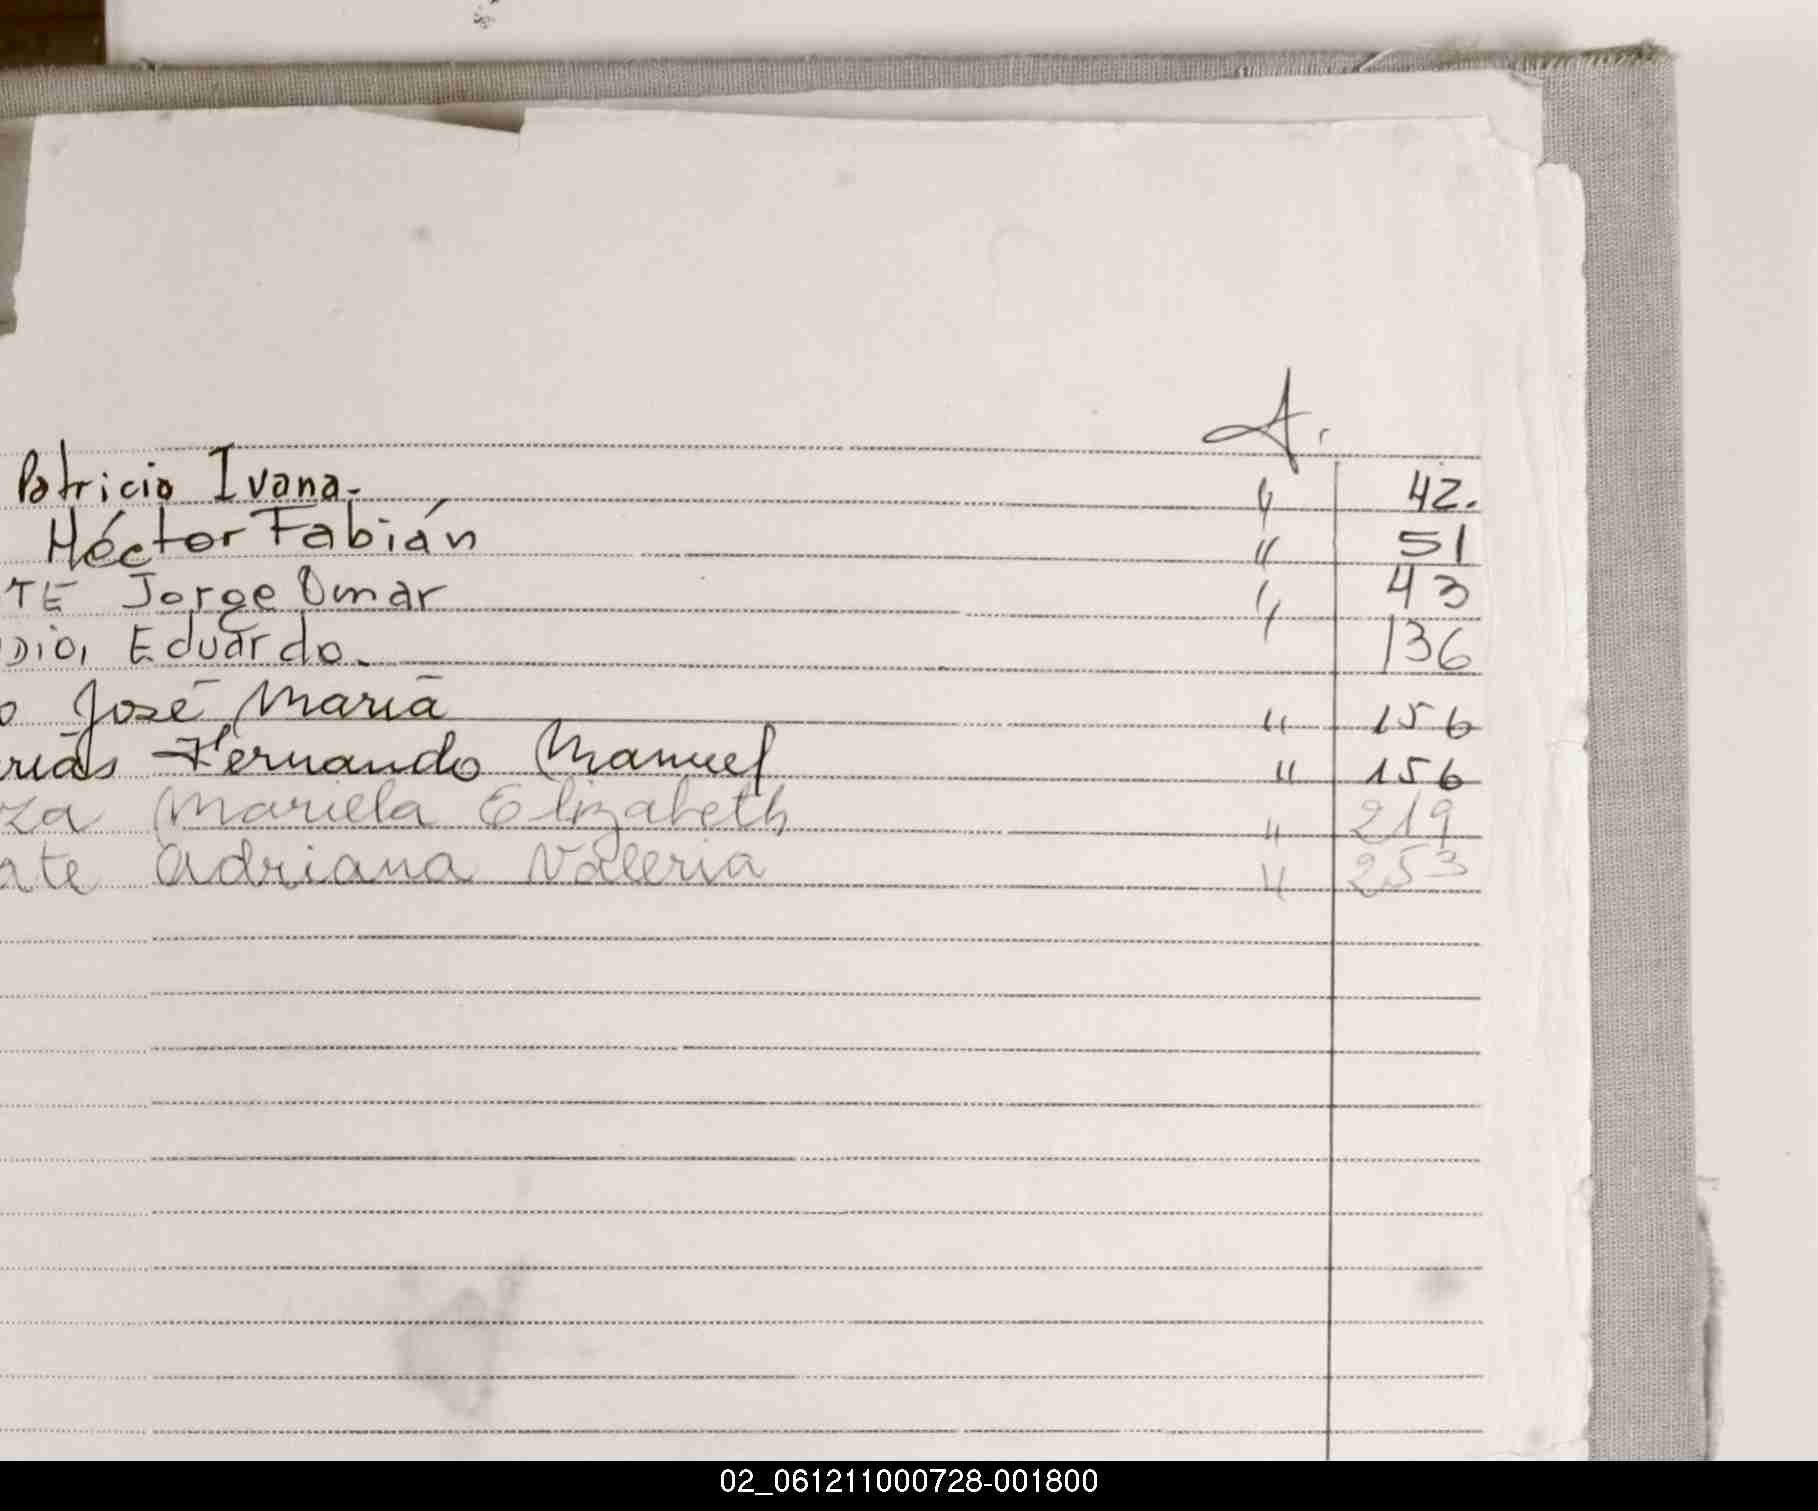 A.
Patricia Ivana. " 42.
Héctor Fabián " 51
TE Jorge Omar " 43
DIO, Eduardo. 136
o José María " 156
rias Fernando Manuel " 156
za Mariela Elizabeth " 219
ate Adriana Valeria " 253
02_061211000728-001800